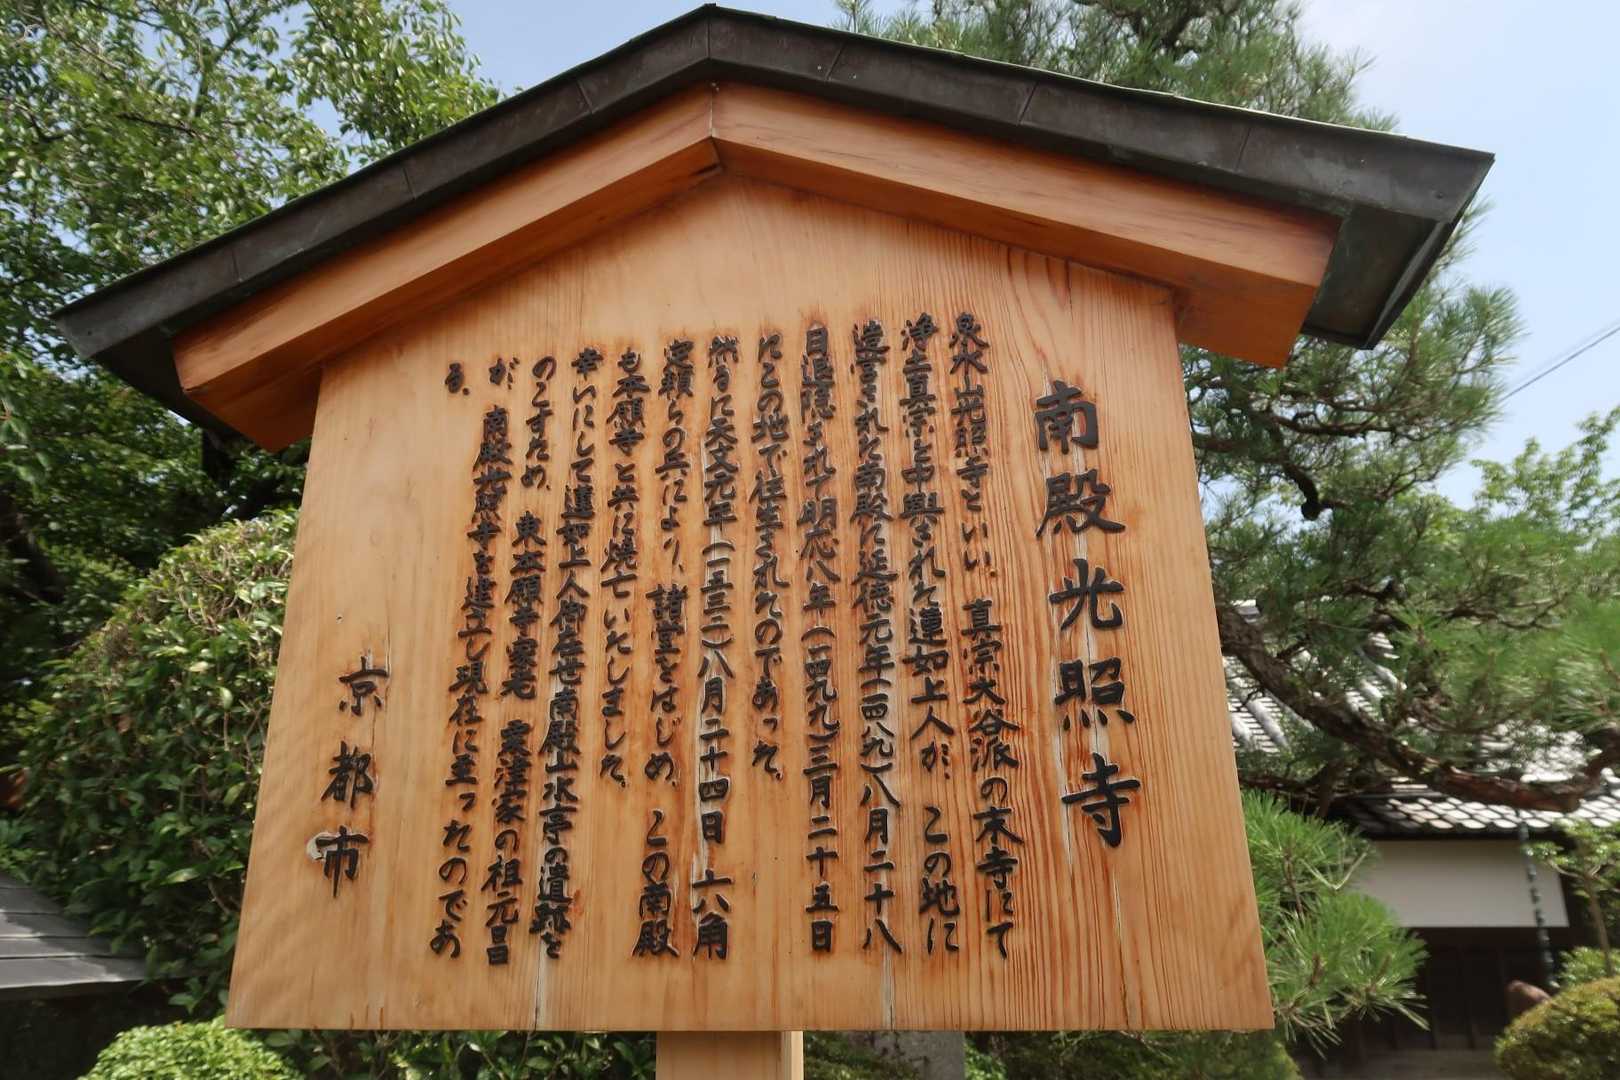 南殿光照寺
泉水山光照寺といい、真宗大谷派の末寺にて
浄土真宗を中興された蓮如上人が、この地に
造営された南殿に延徳元年(一四八九)八月二十八
日退隠されて明応八年(一四九九)三月二十五日
にこの地で往生されたのであった。
然るに天文元年(一五三二)八月二十四日 六角
定頼らの兵により、諸堂をはじめ、この南殿
も本願寺と共に焼亡いたしました。
幸いにして蓮如上人御在世南殿山水亭の遺跡を
のこすため、東本願寺家老 粟津家の祖元昌
が、南殿光照寺を建立し現在に至ったのであ
る。
京都市